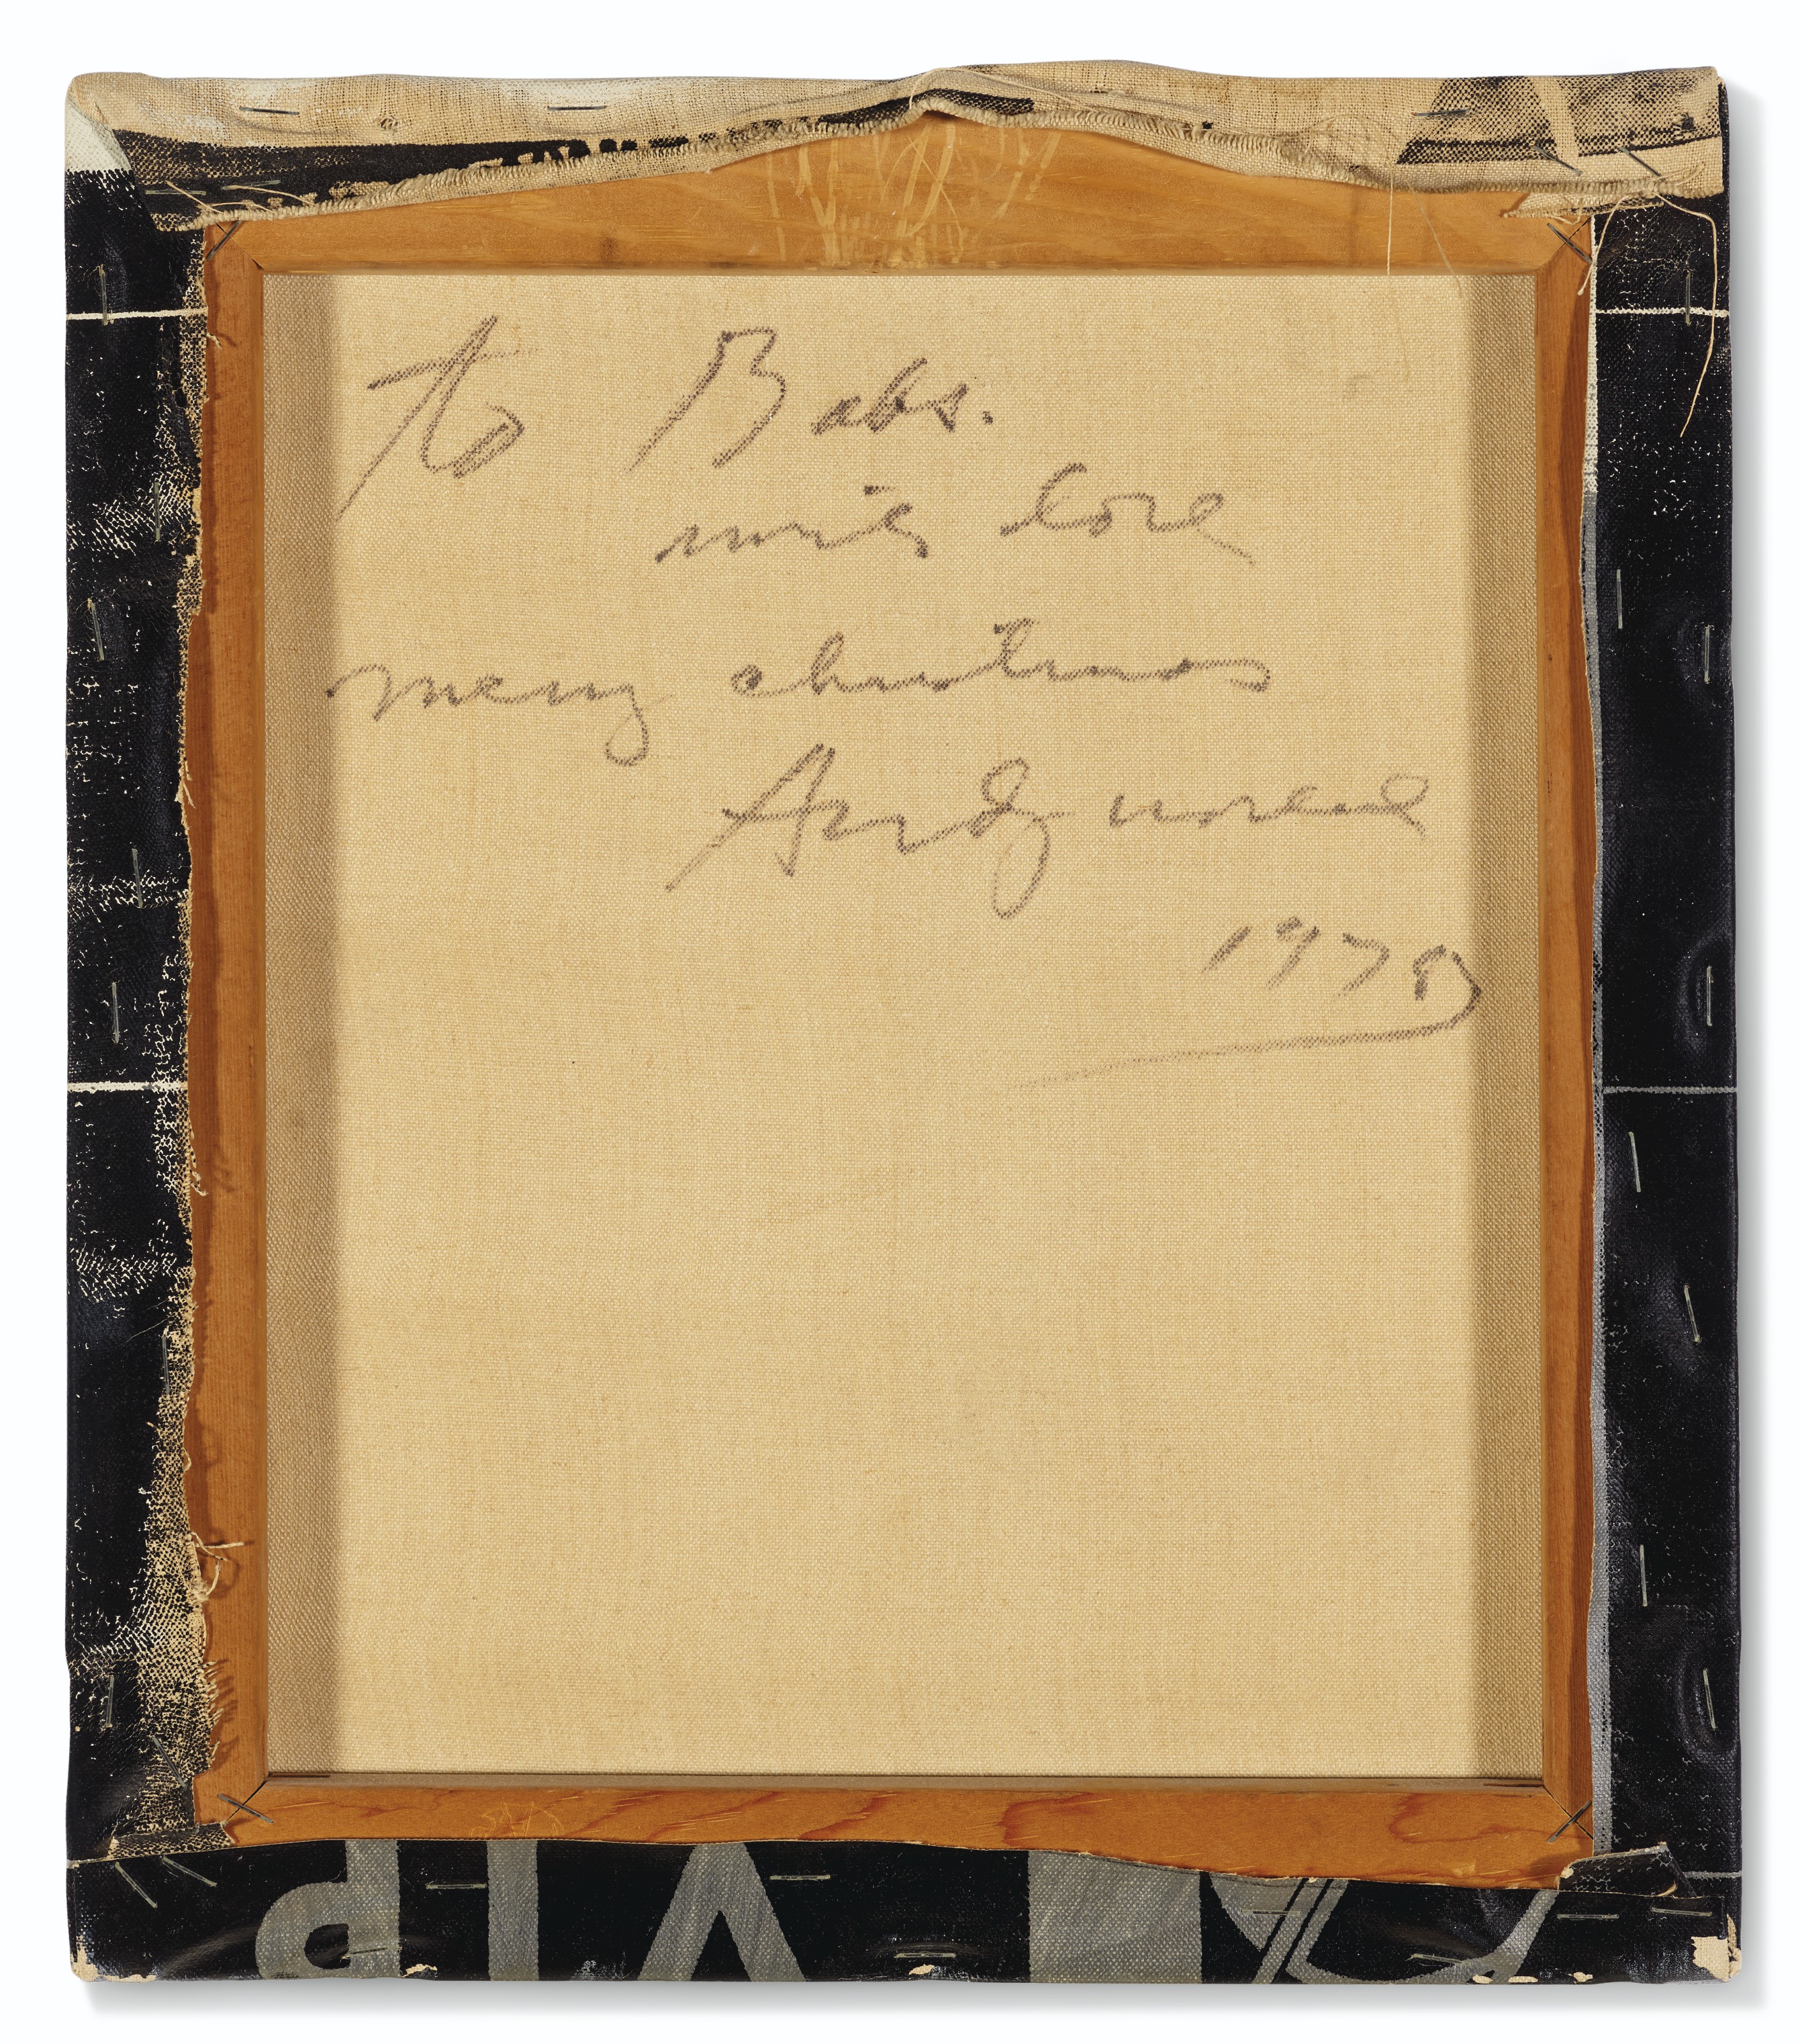 to Babs.
with love
merry christmas
Andy warhol
1978
VIP